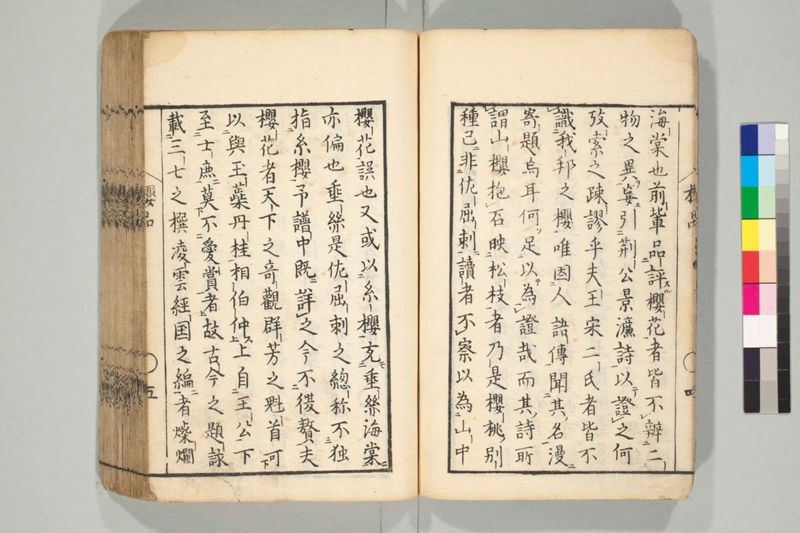 海棠也前輩品評櫻花者皆不辨二
物之異妄引荆公景濂詩以證之何
攷索之疎謬乎夫王宋二氏者皆不
識我邦之櫻唯因人語傳聞其名漫
寄題焉耳何足以為證哉而其詩所
謂山櫻抱石映松枝者乃是櫻桃別
種已非佐屈刺讀者不察以為山中
櫻花誤也又或以糸櫻充垂絲海棠
亦偏也垂絲是佐屈刺之總称不独
指糸櫻予譜中既詳之今不復贅夫
櫻花者天下之奇觀群芳之魁首可
以與玉蘂丹桂相伯仲上自王公下
至士庶莫不愛賞者故古今之題詠
載三七之撰凌雲經国之編者燦爛
櫻品
五